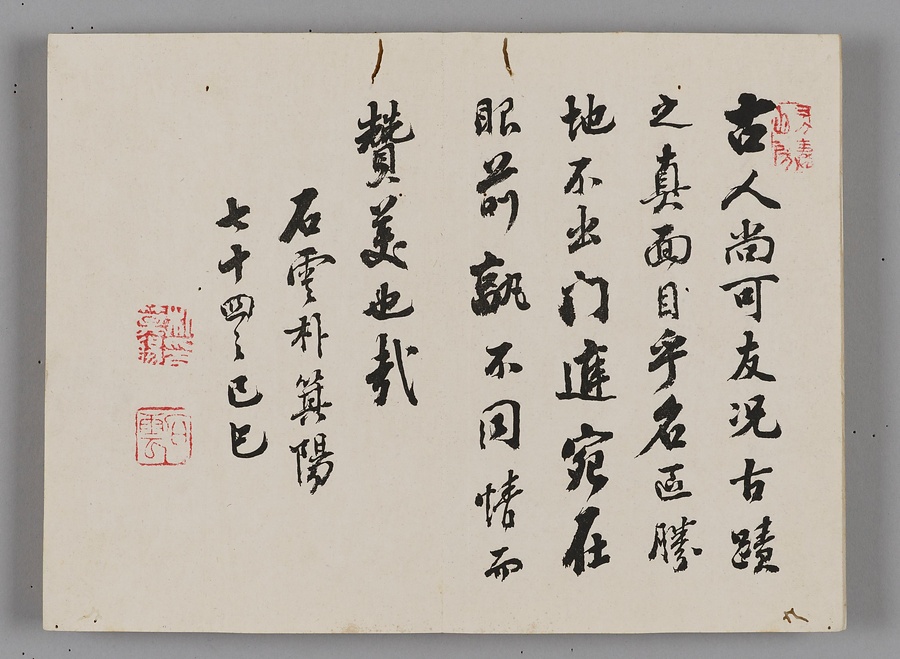 古人尚可友况古蹟
之真面目乎名区勝
地不出门遊宛在
眼前孰不同情而
贊美也哉
石雲朴箕陽
七十四之己巳
石雲